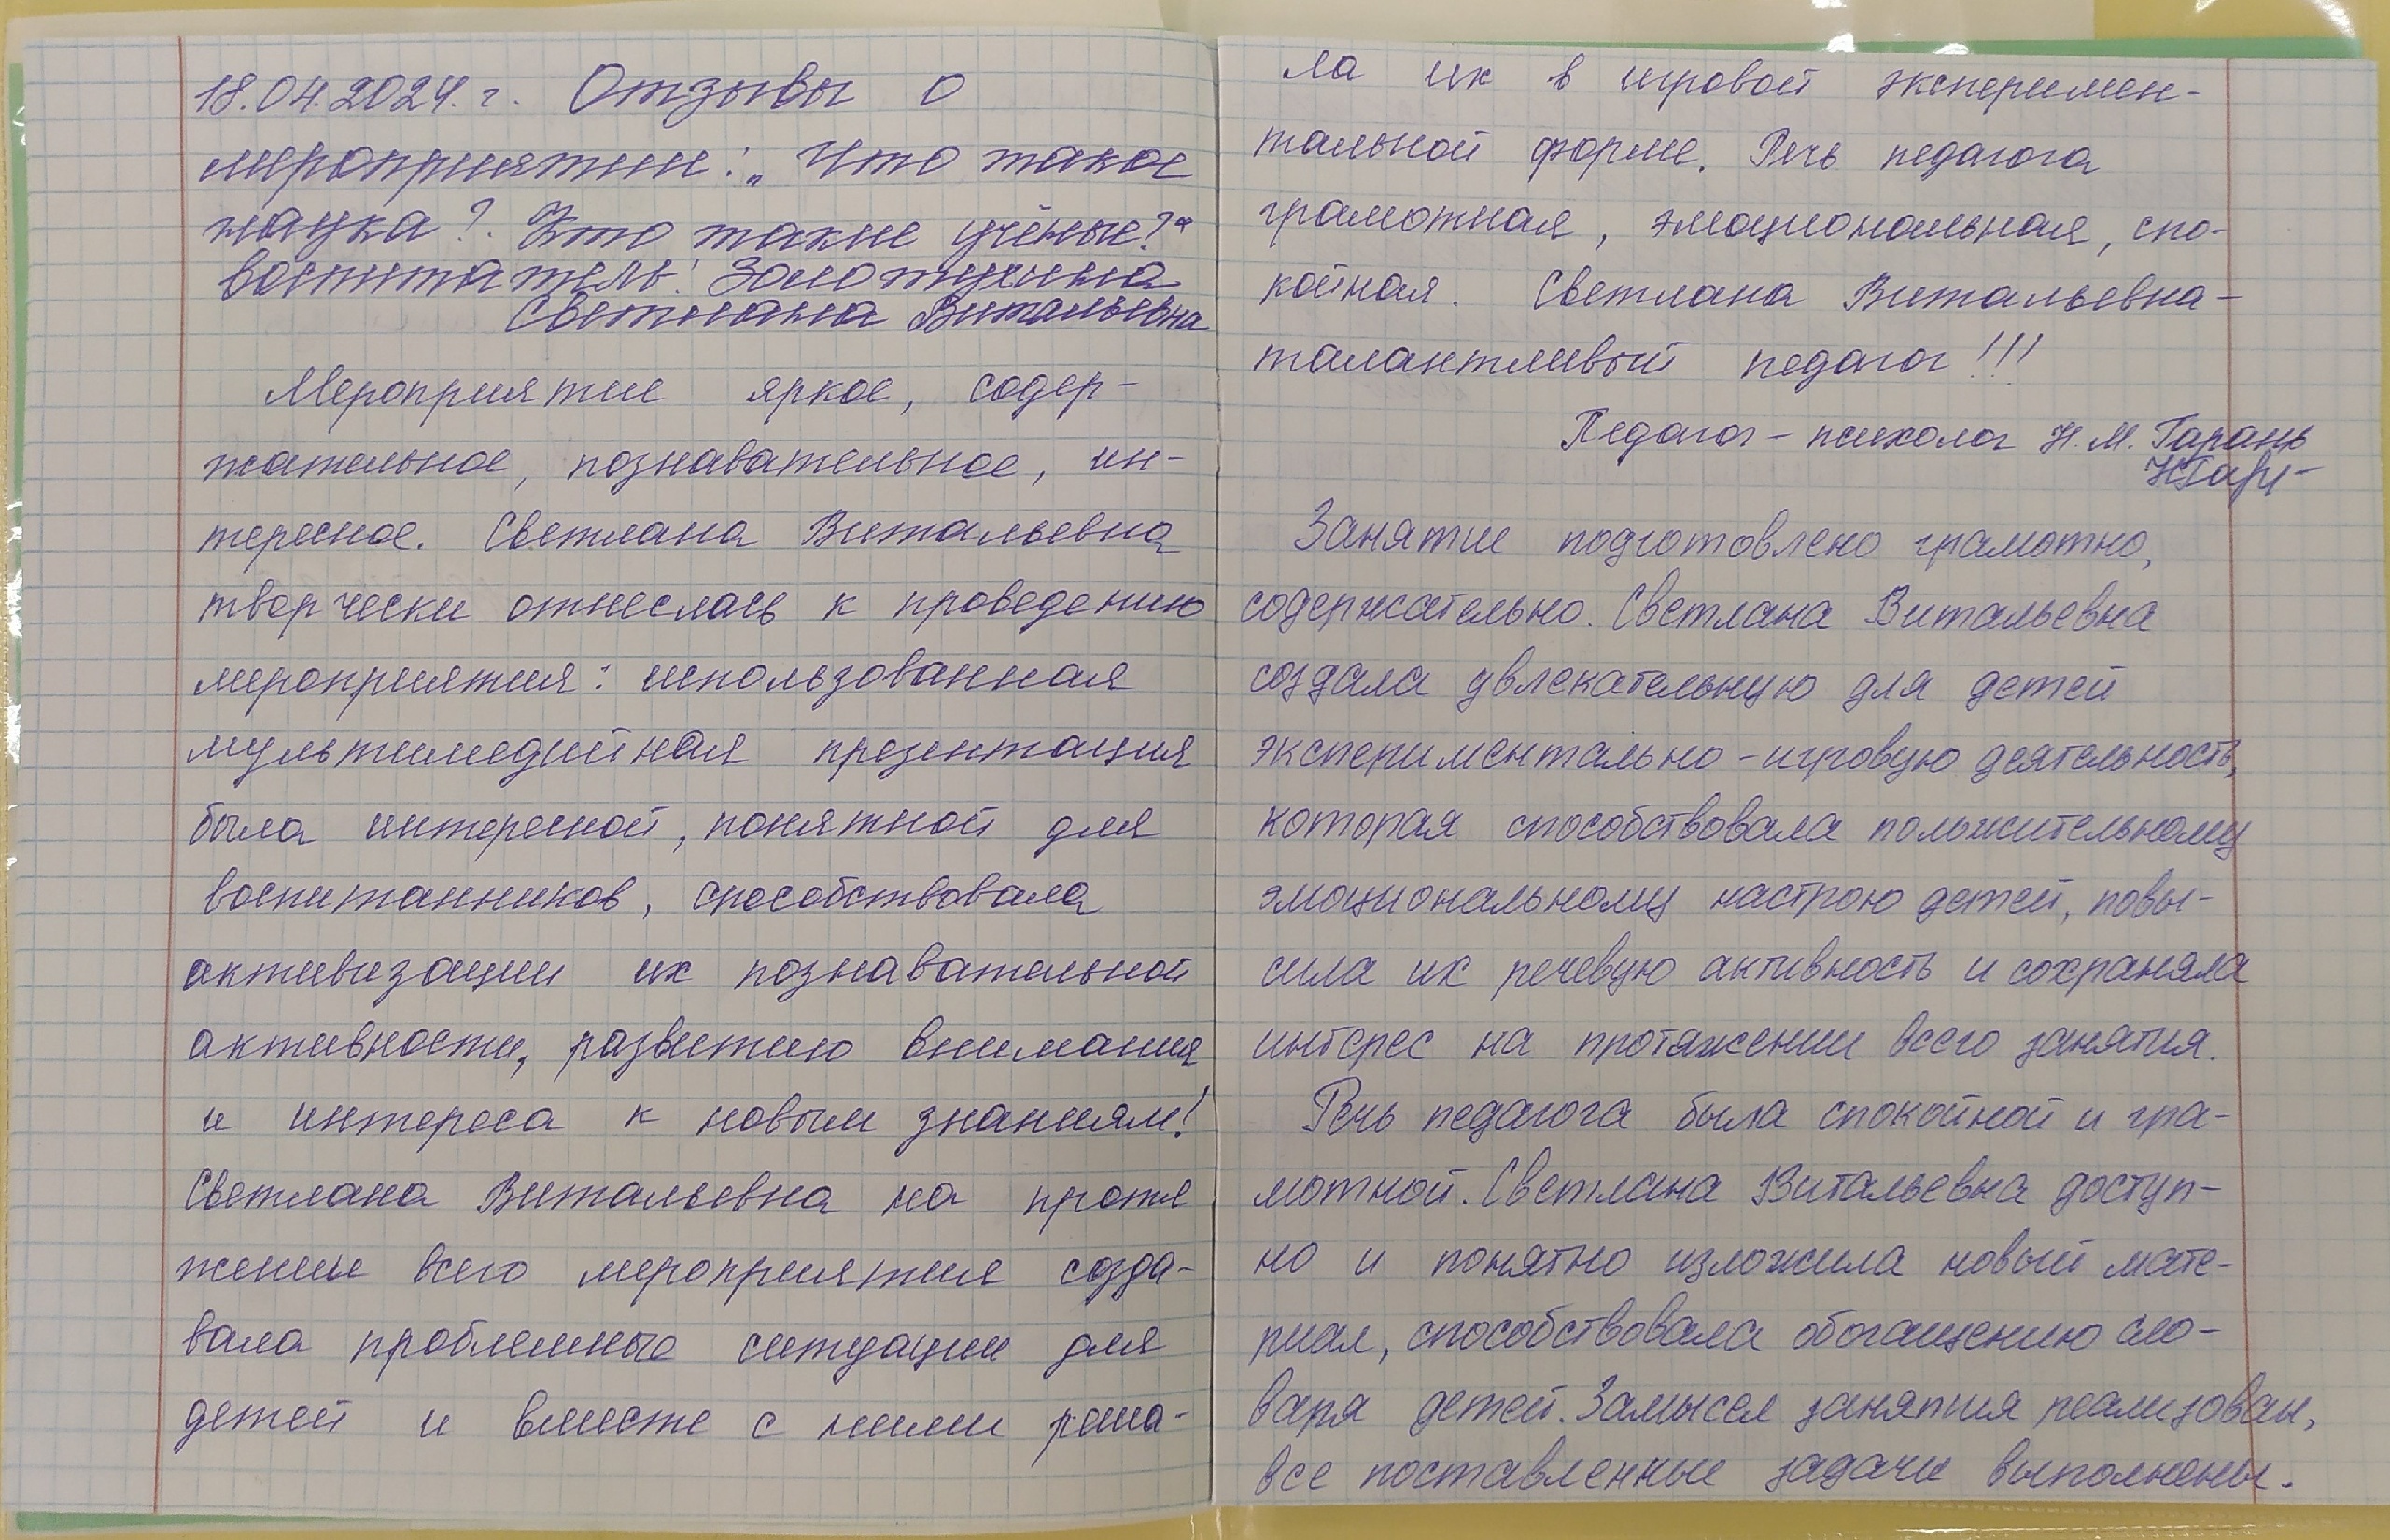 18.04.2024.г. Отзывы о
мероприятии: „Что такое
наука?. Кто такие учёные?“
воспитатель: Золотухина
Светлана Витальевна
Мероприятие яркое, содер-
жательное, познавательное, ин-
тересное. Светлана Витальевна
творчески отнеслась к проведению
мероприятия: использованная
мультимедийная презентация
была интересной, понятной для
воспитанников, способствовала
активизации их познавательной
активности, развитию внимания
и интереса к новым знаниям!
Светлана Витальевна на протя
жении всего мероприятия созда-
вала проблемные ситуации для
детей и вместе с ними реша-
ла их в игровой эксперимен-
тальной форме. Речь педагога
грамотная, эмоциональная, спо-
койная. Светлана Витальевна-
талантливый педагог!!!
Педагог-психолог Н.М. Гарань
Занятие подготовлено грамотно,
содержательно. Светлана Витальевна
создала увлекательную для детей
экспериментально-игровую деятельность,
которая способствовала положительному
эмоциональному настрою детей, повы-
сила их речевую активность и сохраняла
интерес на протяжении всего занятия.
Речь педагога была спокойной и гра-
мотной. Светлана Витальевна доступ-
но и понятно изложила новый мате-
риал, способствовала обогащению сло-
варя детей. Замысел занятия реализован,
все поставленные задачи выполнены.